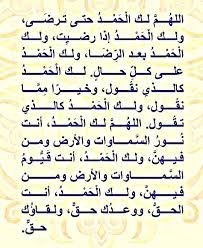 اللهُمَّ لَكَ الْحَمْدُ حتى ترضَى،
ولك الْحَمْدُ إذا رضِيت، ولك
الْحَمْدُ بعد الرِّضَا، ولك الْحَمْدُ
على كلِّ حالٍ. لك الْحَمْدُ
كالذي نقُول، وخيرًا مِمَّا
نقُول، ولك الْحَمْدُ كالذي
تقُول. اللهُمَّ لك الْحَمْدُ، أنت
نُورُ السَّماوات والأرض ومن
فيهنَّ، ولك الْحَمْدُ، أنت قيُّوم
السَّماوات والأرض ومن
فيهنَّ، ولك الْحَمْدُ، أنت
الحقُّ، ووعدُك حقٌّ، ولقاؤُك
حقٌّ.